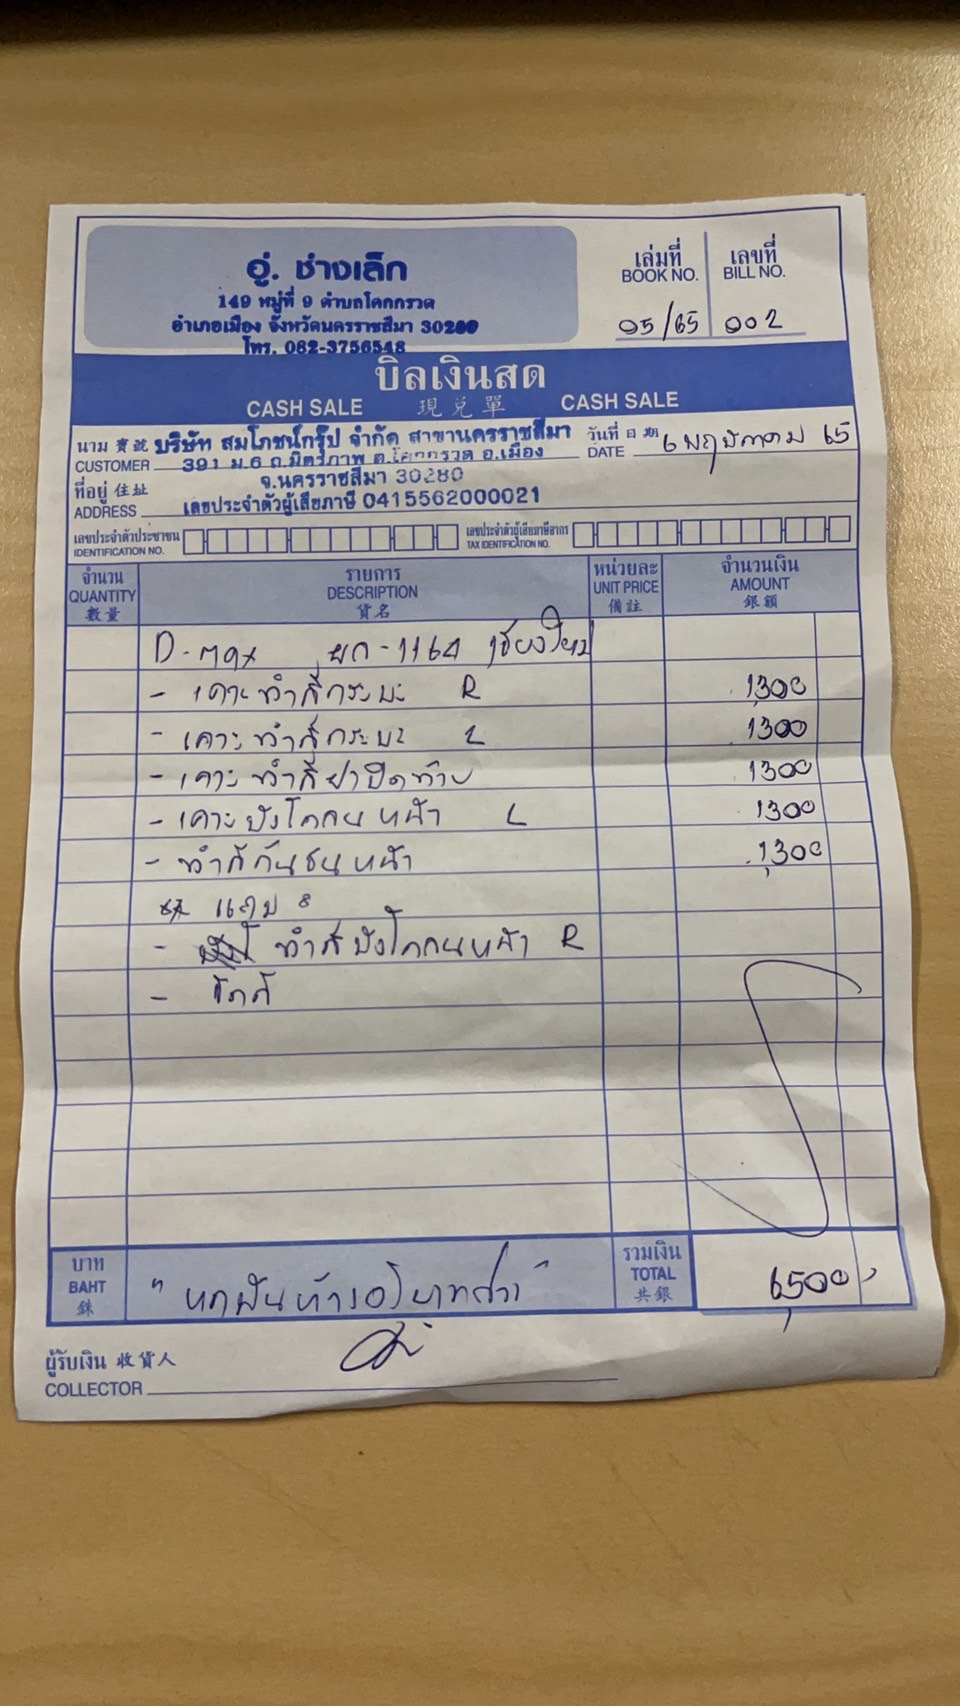 อู่. ช่างเล็ก
149 หมู่ที่ 9 ตำบลโคกกรวด
อำเภอเมือง จังหวัดนครราชสีมา 30280
โทร. 082-3756548
เล่มที่ เลขที่
BOOK NO. BILL NO.
05/65 002
บิลเงินสด
CASH SALE 現兌單 CASH SALE
นาม 寶號 บริษัท สมโภชน์กรุ๊ป จำกัด สาขานครราชสีมา วันที่ 日期 6 พฤษภาคม 65
CUSTOMER 391 ม.6 ถ.มิตรภาพ ต.โคกกรวด อ.เมือง DATE
ที่อยู่ 住址 จ.นครราชสีมา 30280
ADDRESS เลขประจำตัวผู้เสียภาษี 0415562000021
เลขประจำตัวประชาชน เลขประจำตัวผู้เสียภาษีอากร
IDENTIFICATION NO. TAX IDENTIFICATION NO.
จำนวน รายการ หน่วยละ จำนวนเงิน
QUANTITY DESCRIPTION UNIT PRICE AMOUNT
數量 貨名 備註 銀額
D-max ผก-1164 เชียงใหม่
- เคาะทำสีกระบะ R 1,300
- เคาะทำสีกระบะ L 1300
- เคาะทำสีฝาปิดท้าย 1300
- เคาะบังโคลนหน้า L 1300
- ทำสีกันชนหน้า 1,300
แถม
- ทำสีบังโคลนหน้า R
- ขัดสี
บาท รวมเงิน
BAHT "หกพันห้าร้อยบาทถ้วน" TOTAL 6,500
銖 共銀
ผู้รับเงิน 收貨人
COLLECTOR